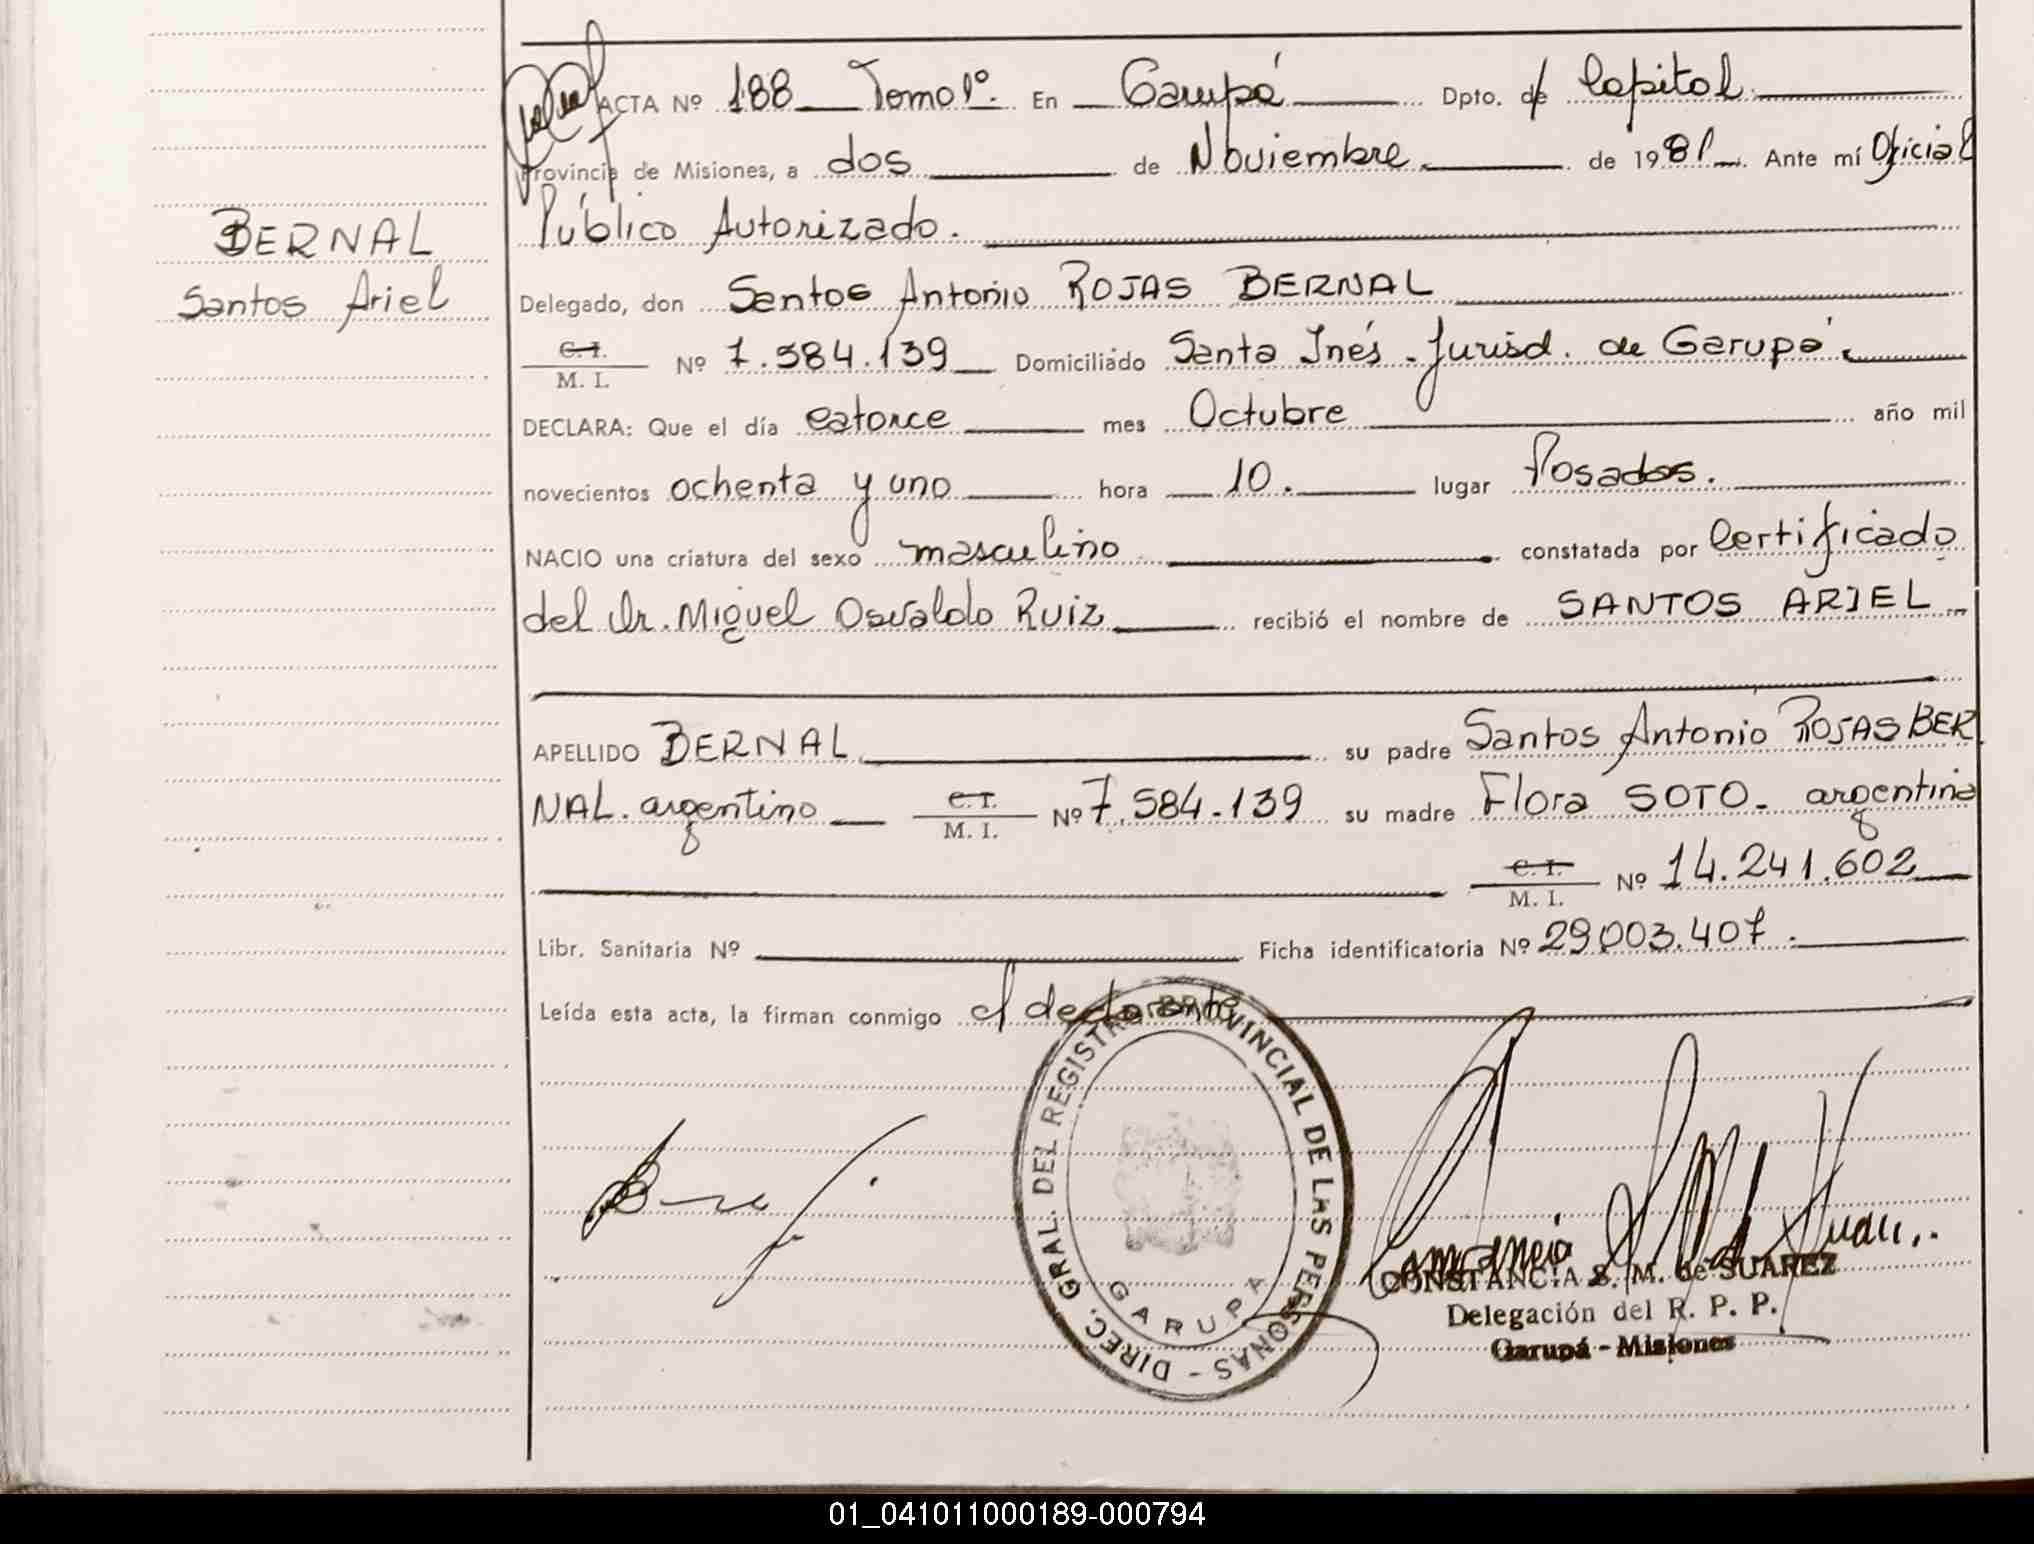 ACTA Nº 188 Tomo 1º. En Garupá Dpto. de Capital
Provincia de Misiones, a dos de Noviembre de 1981 Ante mí Oficial
Público Autorizado.
BERNAL
Santos Ariel
Delegado, don Santos Antonio ROJAS BERNAL
C.I. M. I. Nº 7.584.139 Domiciliado Santa Inés - Jurisd. de Garupá
DECLARA: Que el día catorce mes Octubre año mil
novecientos ochenta y uno hora 10. lugar Posadas.
NACIO una criatura del sexo masculino constatada por Certificado
del Dr. Miguel Osvaldo Ruiz recibió el nombre de SANTOS ARIEL
APELLIDO BERNAL su padre Santos Antonio ROJAS BER
NAL. argentino C.I. M. I. Nº 7.584.139 su madre Flora SOTO - argentina
C.I. M. I. Nº 14.241.602
Libr. Sanitaria Nº Ficha identificatoria Nº 29.003.407.
Leída esta acta, la firman conmigo el declarante
DIREC. GRAL. DEL REGISTRO PROVINCIAL DE LAS PERSONAS -
GARUPA
CONSTANCIA S. M. de SUAREZ
Delegación del R. P. P.
Garupá - Misiones
01_041011000189-000794